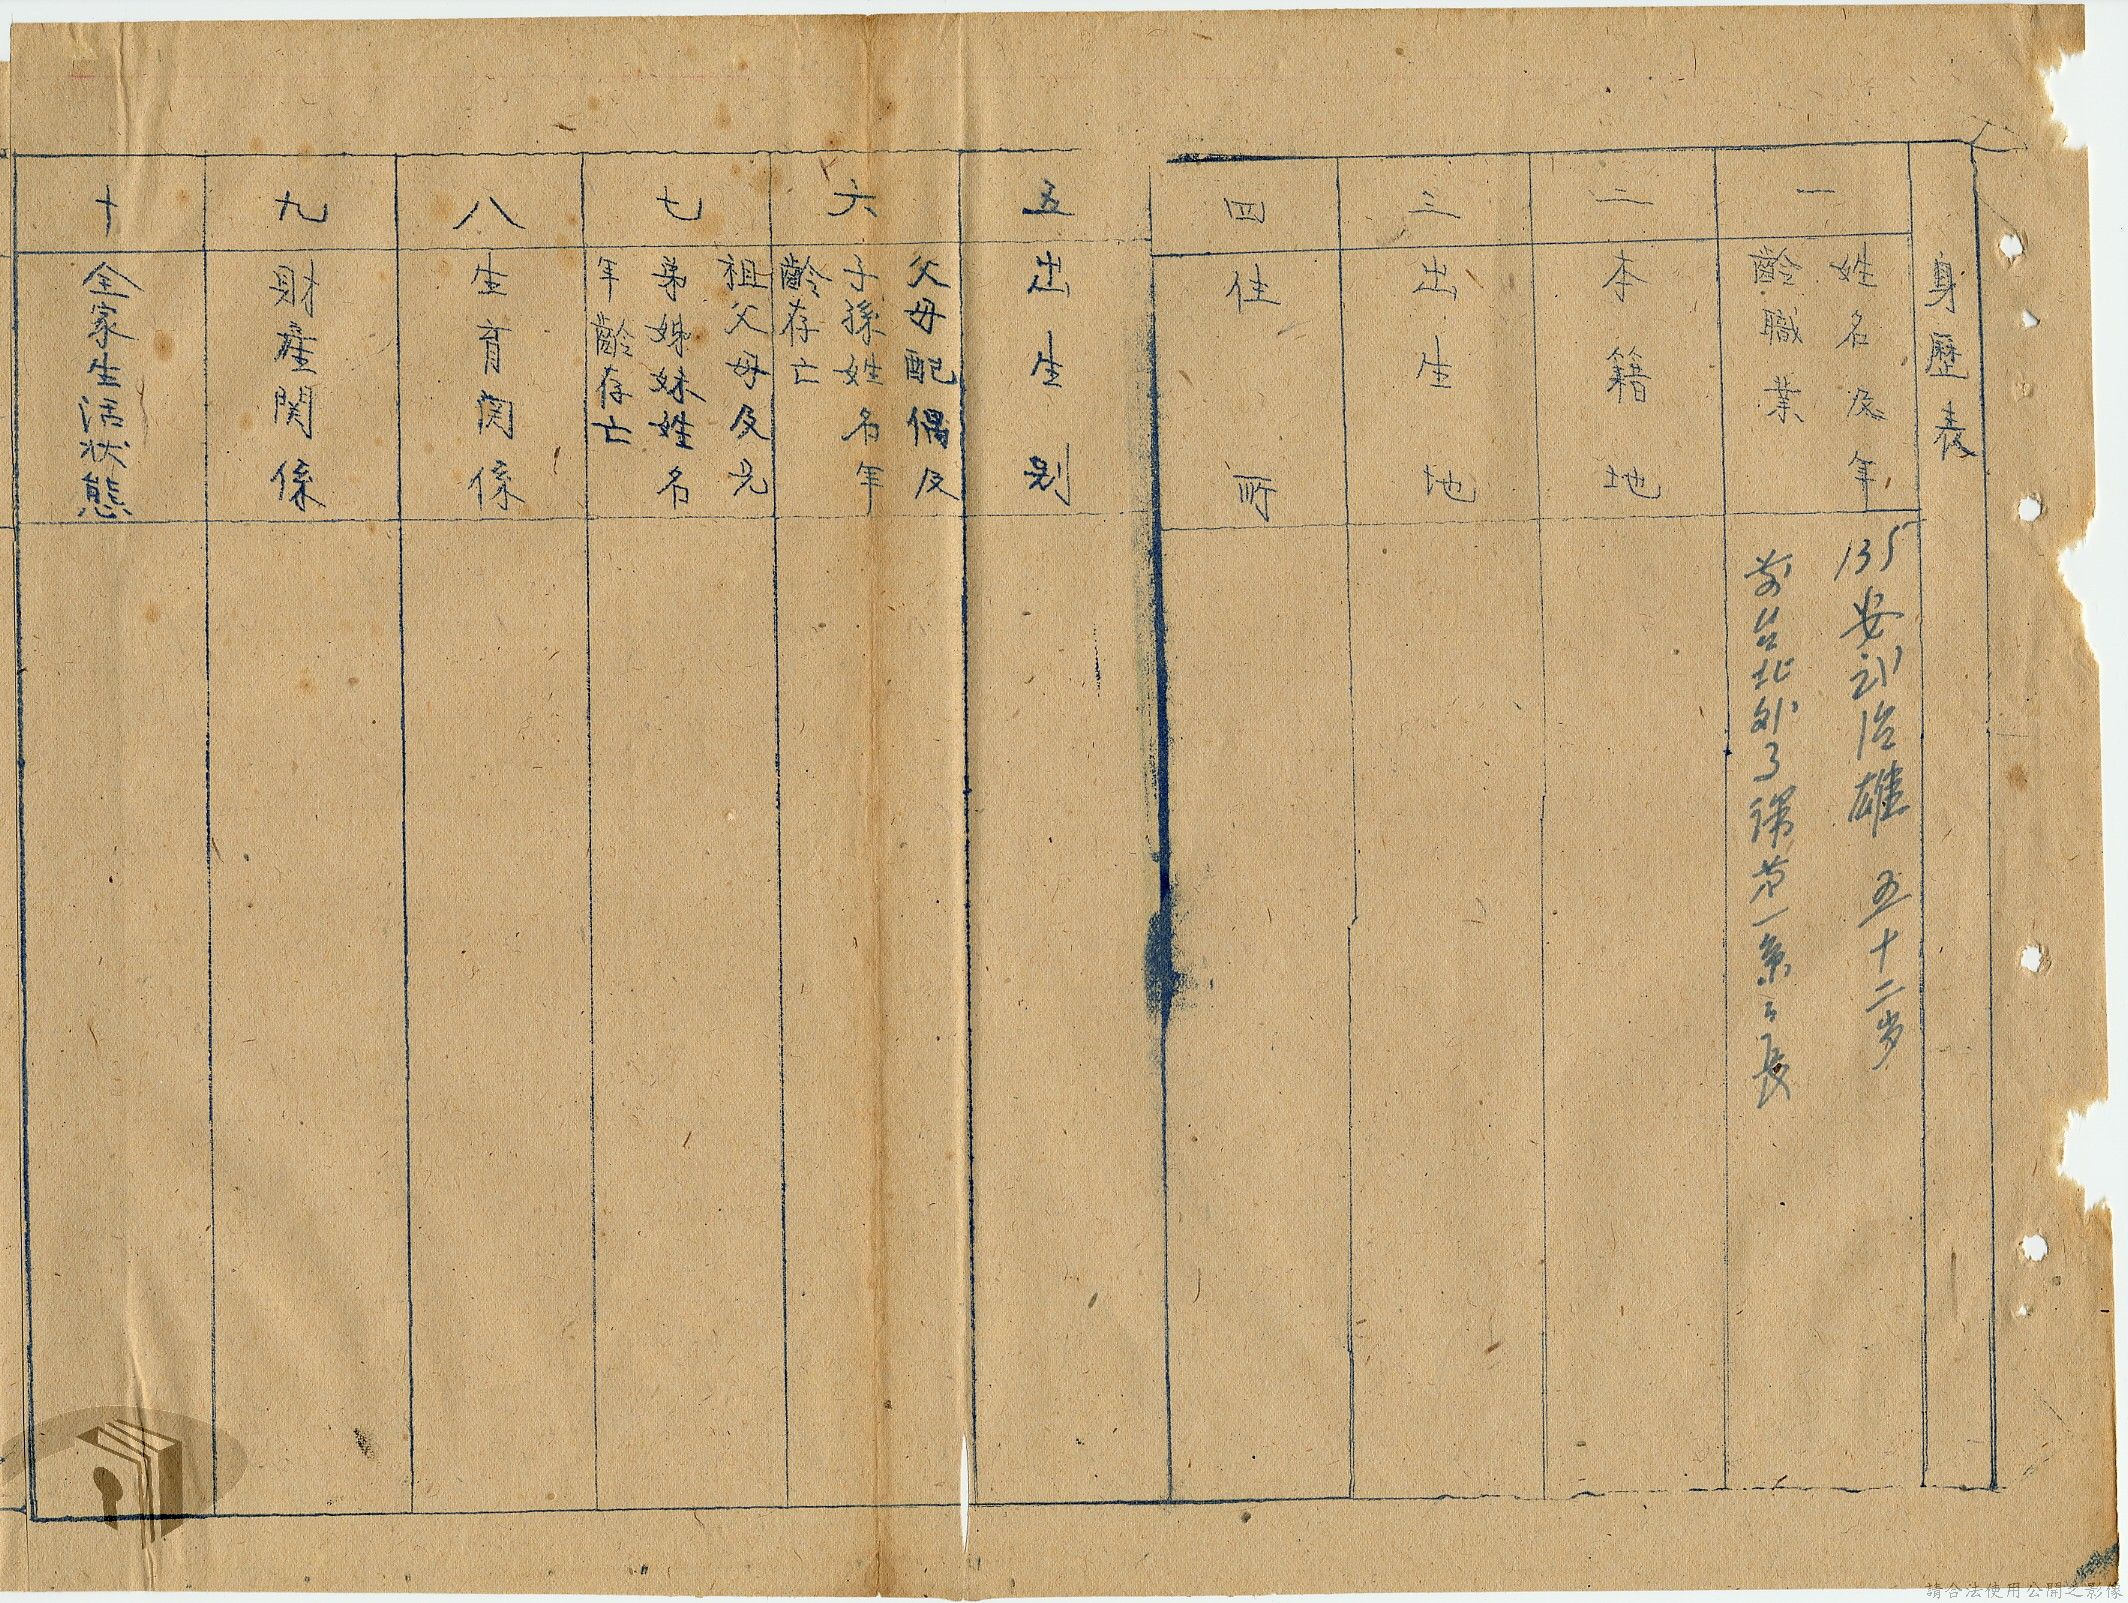 身歷表
一
姓名及年
齡職業
135 安訓治雄 五十二岁
二
本籍地
三
出生地
四
住所
五
出生别
六
父母配偶及
子孫姓名年
齡存亡
七
祖父母及兄
弟姊妹姓名
年齡存亡
八
生育関係
九
財産関係
十
全家生活状態
請合法使用公開之影像